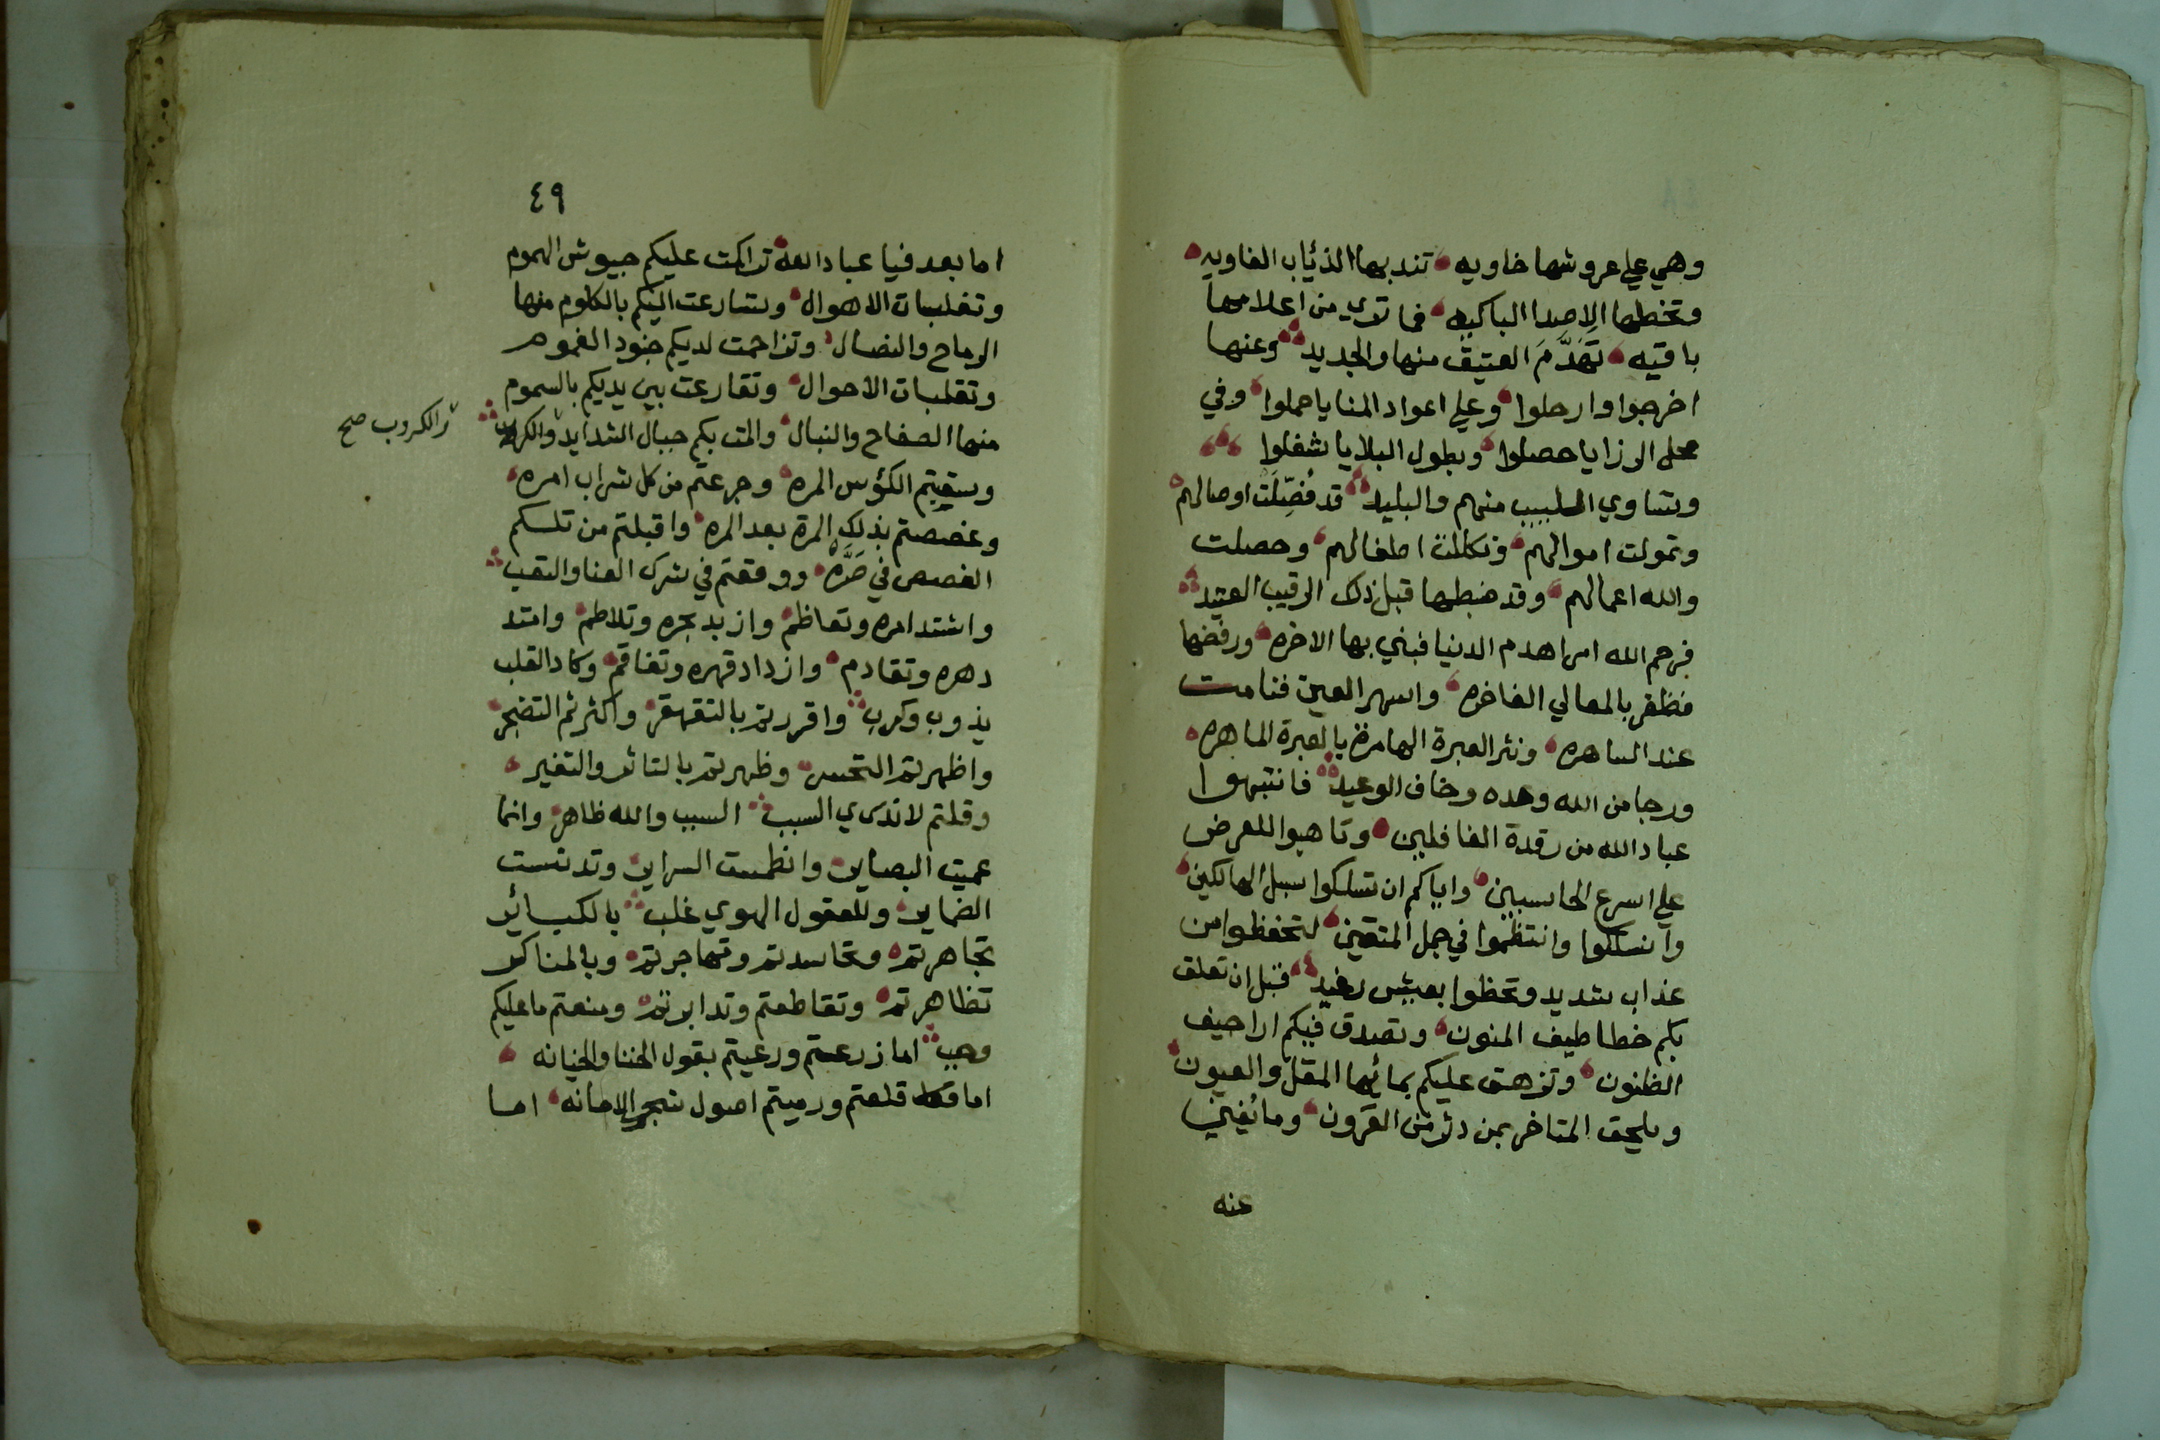 وهي علي عروشها خاويه تندبها الذئاب الغاويه
وتخطبها الاصدا الباكيه فما تري من اعلامها
باقيه تهَدَّمَ العتيق منها والجديد وعنها
اخرجوا وارحلوا وعلي اعواد المنايا حملوا وفي
محل الرزايا حصلوا وبطول البلايا شغلوا
وتساوي اللبيب منهم والبليد قد فُصِّلَت اوصالهم
وتمولت اموالهم وتكللت اطفالهم وحصلت
والله اعمالهم وقد ضبطها قبل ذلك الرقيب العتيد
فرحم الله امرا هدم الدنيا فبني بها الاخره ورفضها
فظفر بالمعالي الفاخره واسهر العين فنامت
عند الساهره ونثر العبرة الهامرة بالعبرة الماهره
ورجا من الله وعده وخاف الوعيد فانتبهوا
عباد الله من رقدة الغافلين وتاهبوا للعرض
علي اسرع الحاسبين واياكم ان تسلكوا سبل الهالكين
وانسلكوا وانتظموا في جمل المتقين لتحفظوا من
عذاب شديد وتحظوا بعيش رغيد قبل ان تعلق
بكم خطاطيف المنون وتصدق فيكم اراجيف
الظنون وتزهق عليكم بمائها المقل والعيون
ويلحق المتاخر بمن دثر من القرون وما يُغني
عنه
٤٩
اما بعد فيا عباد الله تراكمت عليكم جيوش الهموم
وتغلبات الاهوال وتسارعت اليكم بالكلوم منها
الرماح والنصال وتزاحمت لديكم جنود الغموم
وتقلبات الاحوال وتقارعت بين يديكم بالسموم
منها الصفاح والنبال والمت بكم جبال الشدايد والكرب
والكروب صح
وسقيتم الكؤس المره وجرعتم من كل شراب امره
وغصصتم بذلك المرة بعد المره واقبلتم من تلكم
الغصص في ضَرَّه ووقعتم في شرك العنا والتعب
واشتد امره وتعاظم وازبد بحره وتلاطم وامتد
دهره وتقادم وازداد قهره وتفاقم وكاد القلب
يذوب وكرب واقررتم بالتقهقر واكثرتم التضجر
واظهرتم التحسر وظهرتم بالتاثر والتغير
وقلتم لا ندري السبب السبب والله ظاهر وانما
عميت البصاير وانطمست السراير وتدنست
الضماير وللعقول الهوي غلب بالكبائر
تجاهرتم وتحاسدتم وتهاجرتم وبالمناكر
تظاهرتم وتقاطعتم وتدابرتم ومنعتم ما عليكم
وجب اما زرعتم ورعيتم بقول الخنا والخيانه
اما قطـ قلعتم ورميتم اصول شجر الامانه اما